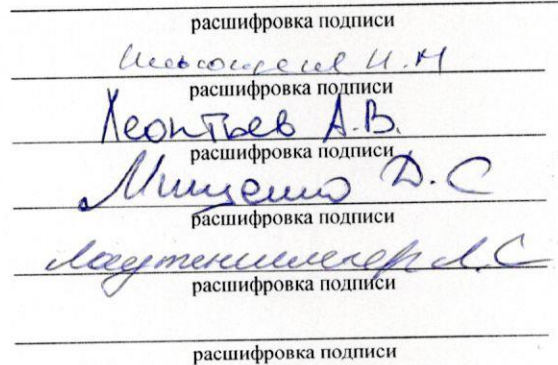 расшифровка подписи
И.М
расшифровка подписи
Леонтьев А.В.
расшифровка подписи
Мищенко Д.С
расшифровка подписи
Лаутеншлегер Л.С
расшифровка подписи
расшифровка подписи